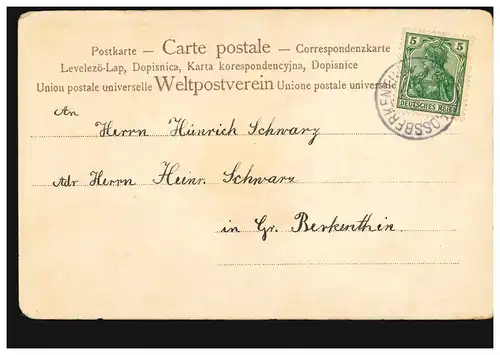 Postkarte – Carte postale – Correspondenzkarte
Levelező-Lap, Dopisnica, Karta korespondencyjna, Dopisnice
Union postale universelle Weltpostverein Unione postale universale
5 5
DEUTSCHES REICH
GROSSBERKENTHIN
An
Herrn Hinrich Schwarz
Adr Herrn Heinr. Schwarz
in Gr. Berkenthin.